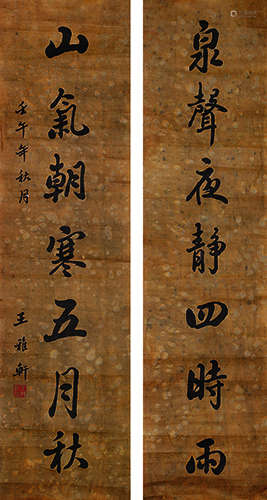 泉聲夜靜四時雨
山氣朝寒五月秋
壬午年秋月
王雅軒